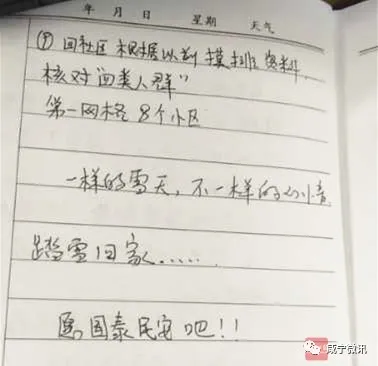 年 月 日 星期 天气
⑦ 回社区 根据以前 摸排 资料,
核对“四类人群”
第一网格 8个小区
一样的雪天,不一样的心情
踏雪回家......
愿国泰民安吧!!
咸宁微讯